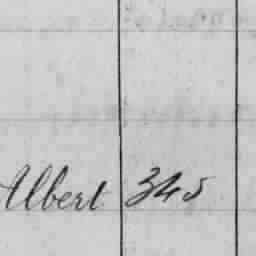 Albert 345